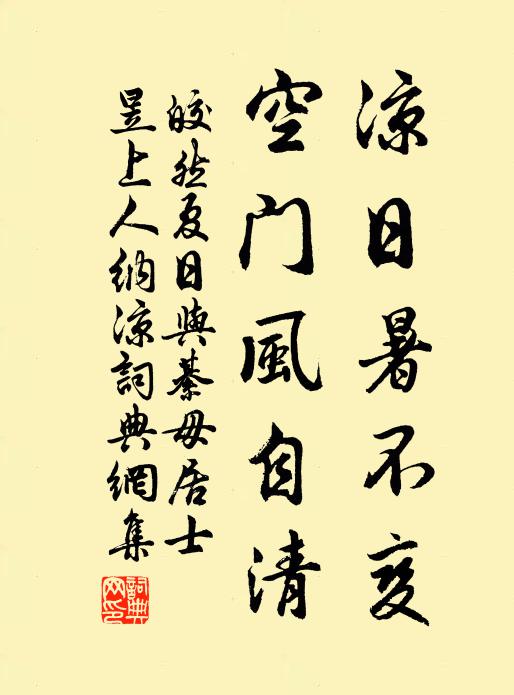 凉日暑不变
空门風自清
皎然夏日與綦毋居士
昱上人納凉詞典網集